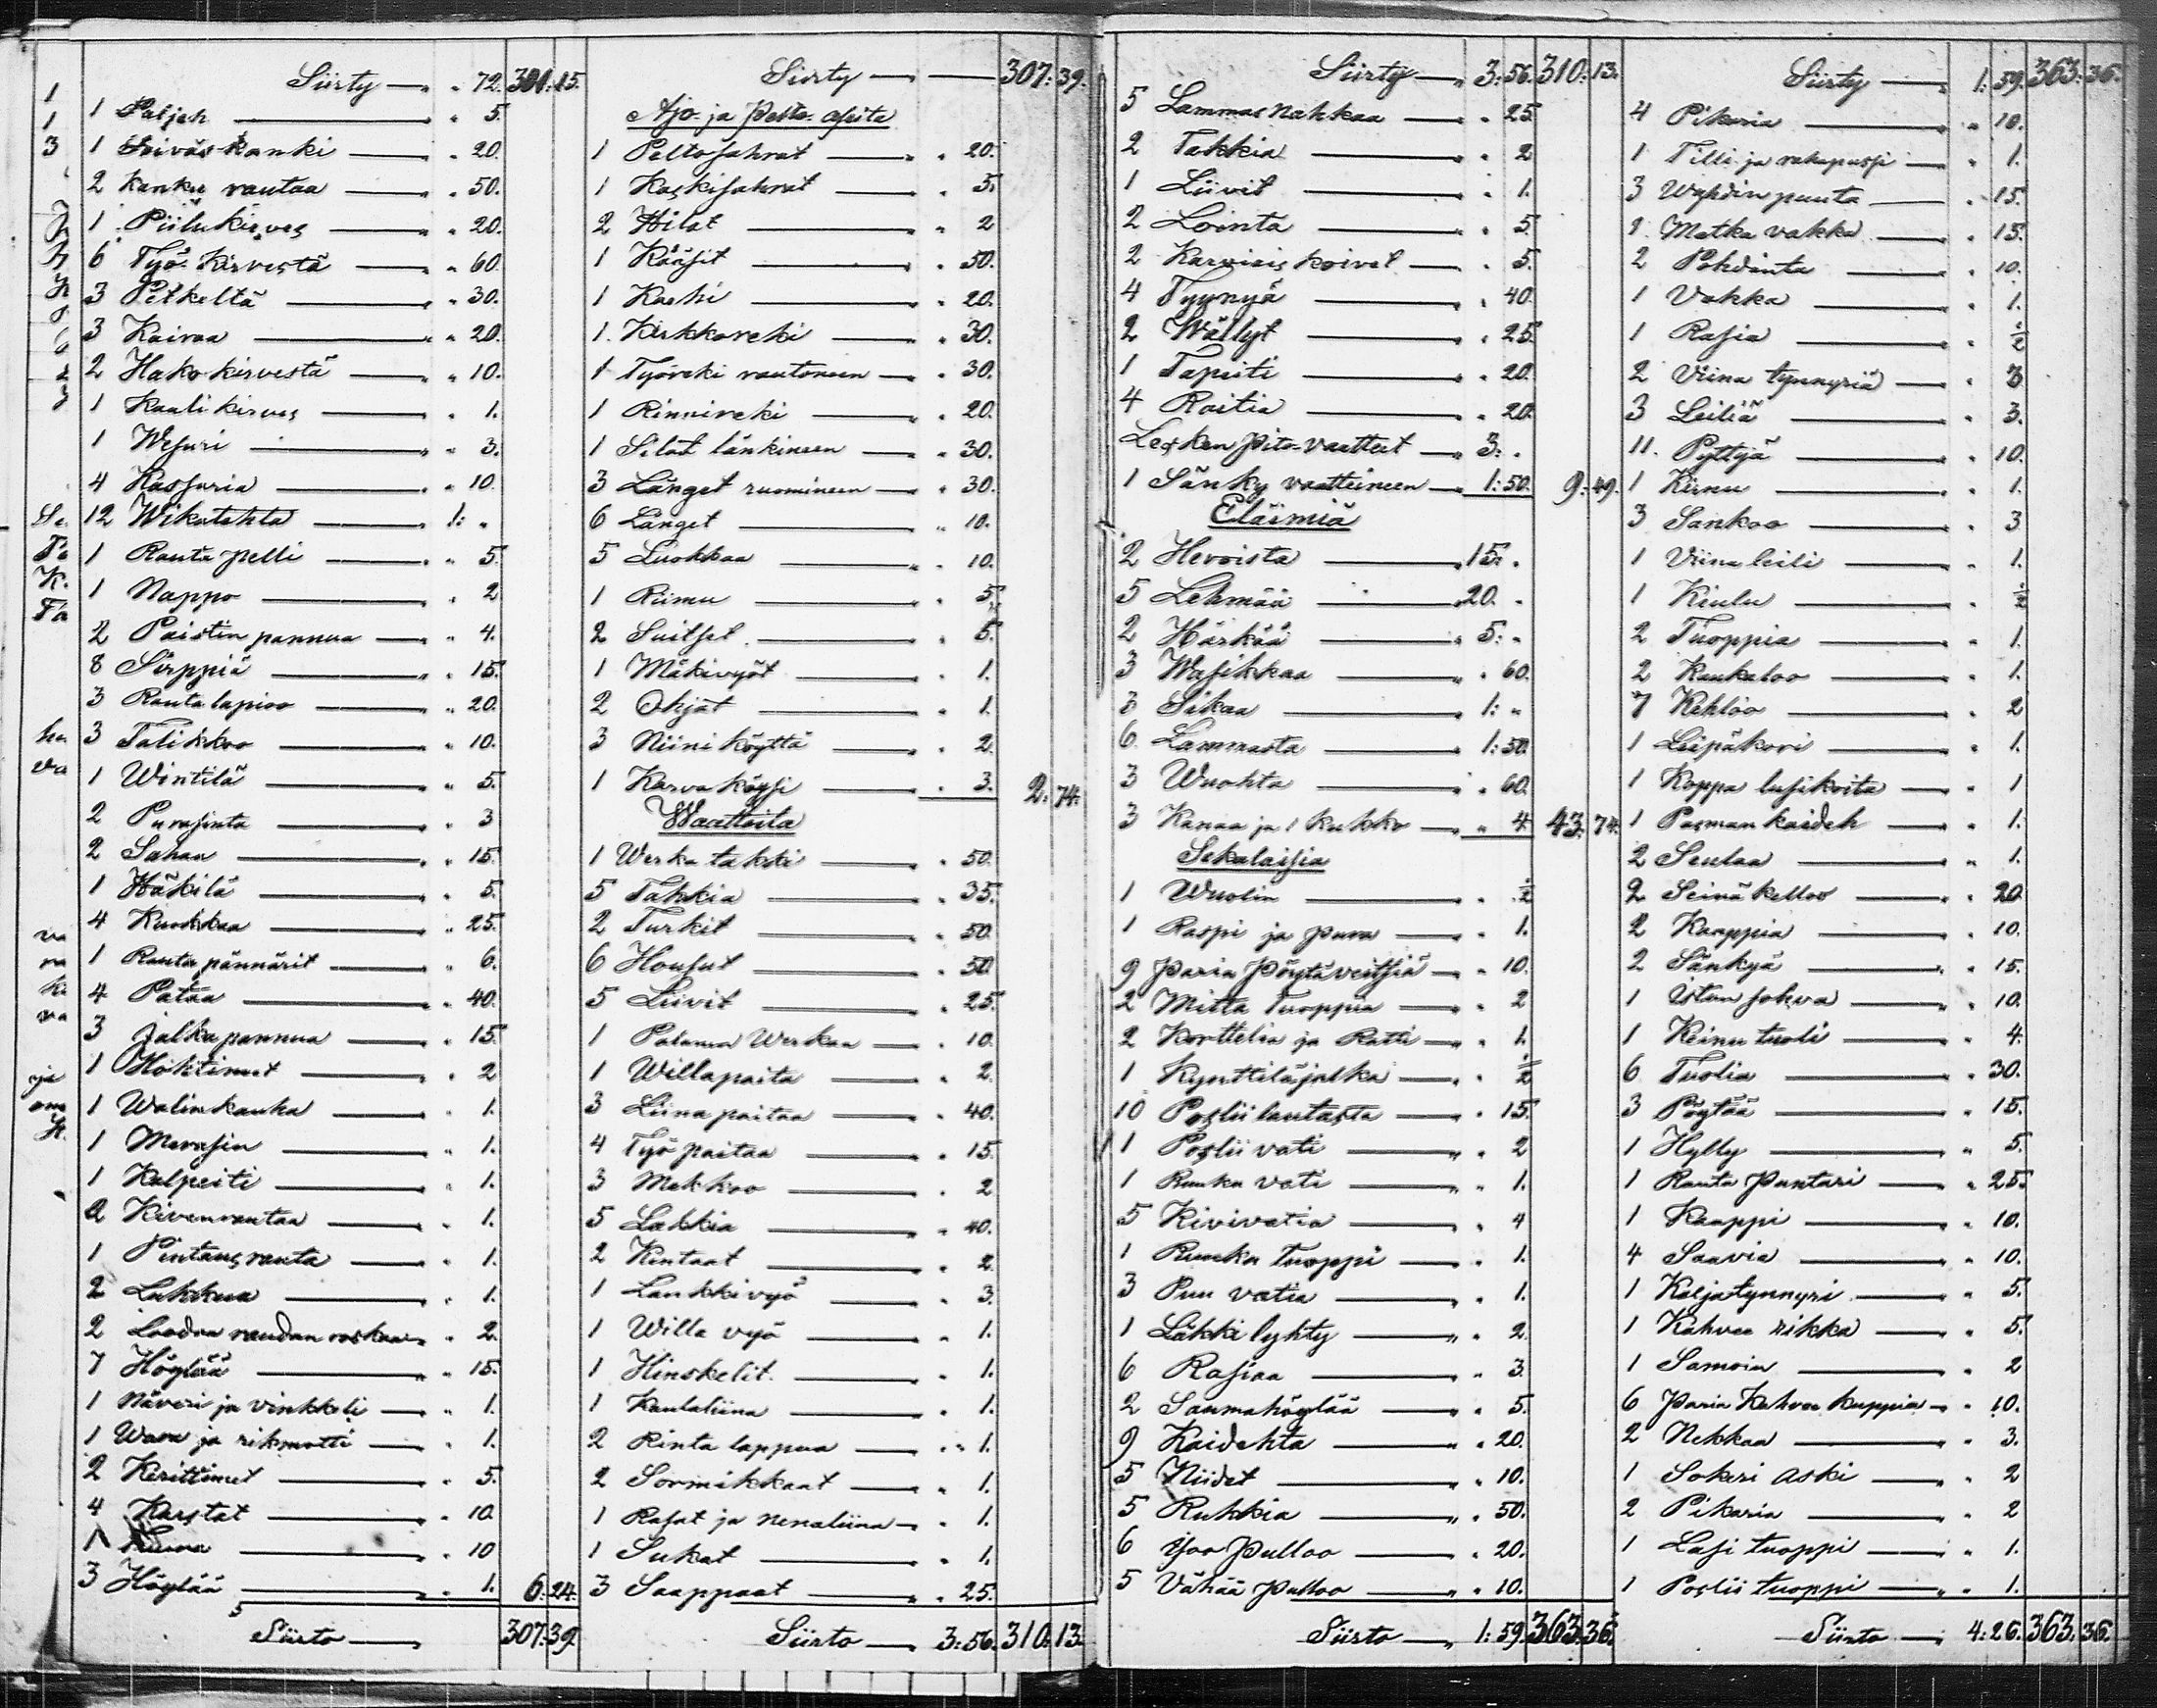 Siirty — " 72. 301:15.
1 Paljeh — " 5.
1 Seiväs Kanki — " 20.
2 Kanku rautaa — " 50.
1 Piilukirves — " 20.
6 Työ Kirvestä — " 60.
3 Petkeltä — " 30.
3 Kairaa — " 20.
2 Hako kirvestä — " 10.
1 Kaali kirves — " 1.
1 Wesuri — " 3.
4 Kassaria — " 10.
12 Wikatehta — 1: "
1 Rauta pelli — " 5.
1 Nappo — " 2
2 Paistin pannua — " 4.
8 Sirppiä — " 15.
3 Rautalapioo — " 20.
3 Talikkoo — " 10.
1 Wintilä — " 5.
2 Purasinta — " 3
2 Sahaa — " 15.
1 Häkilä — " 5.
4 Kuokkaa — " 25.
1 Rauta pännärit — " 6.
4 Pataa — " 40.
3 Jalkapannua — " 15.
1 Hohtimet — " 2
1 Walinkauha — " 1.
1 Merasin — " 1.
1 Kalpeiti — " 1.
2 Kivenrautaa — " 1.
1 Pintaus rauta — " 1.
2 Lukkua — " 1.
2 raudan — " 2.
7 Höylää — " 15.
1 Näveri ja vinkkeli — " 1.
1 Wara ja rikmotti — " 1.
2 Kerittimet — " 5.
4 Karstat — " 10.
1 — " 10
3 Höylää — " 1. 6:24.
Siirto — 307:39
Siirty — 307:39.
Ajo- ja Pelto- aseita
1 Peltosahrat — " 20.
1 Kaskisahrat — " 5.
2 Hilat — " 2
1 Kääsit — " 50.
1 Karhi — " 20.
1. Kirkkoreki — " 30.
1 Työreki rautoneen — " 30.
1 Rinnireki — " 20.
1 Silat länkineen — " 30.
3 Länget ruomineen — " 30.
6 Länget — " 10.
5 Luokkaa — " 10.
1 Riimu — " 5.
2 Suitset — " 5.
1 Mäkivyöt — " 1.
2 Ohjat — " 1.
3 Niini köyttä — " 2.
1 Karva köysi — " 3. 2:74.
Waatteita
1 Werka takki — " 50.
5 Takkia — " 35.
2 Turkit — " 50.
6 Housut — " 50.
5 Liivit — " 25.
1 Palanen Werkaa — " 10.
1 Willapaita — " 2.
3 Liina paitaa — " 40.
4 Työ paitaa — " 15.
3 Mekkoo — " 2
5 Lakkia — " 40.
2 Kintaat — " 2.
1 Lankkivyö — " 3.
1 Willa vyö — " 1.
1 Hinskelit — " 1.
1 Kaulaliina — " 1.
2 Rinta lappua — " 1.
2 Sormikkaat — " 1.
1 Rasat ja nenäliina — " 1.
1 Sukat — " 1.
3 Saappaat — " 25.
Siirto — 3:56. 310:13.
Siirty — 3:56. 310:13.
5 Lammas nahkaa — " 25.
2 Takkia — " 2
1 Liivit — " 1.
2 Lointa — " 5.
2 Karviais koivet — " 5.
4 Tyynyä — " 40.
2 Wällyt — " 25.
1 Tapeiti — " 20.
4 Raitia — " 20.
Lesken Pito-vaatteet — 3: "
1 Sänky vaatteineen — 1:50. 9:49.
Eläimiä
2 Hevoista — 15: "
5 Lehmää — 20. "
2 Härkää — 5: "
3 Wasikkaa — " 60.
3 Sikaa — 1: "
6 Lammasta — 1:50.
3 Wuohta — " 60.
3 Kanaa ja 1 Kukko — " 4. 43:74.
Sekalaisia
1 Wuolin — " ½
1 Raspi ja pura — " 1.
9 Paria Pöytäveitsiä — " 10.
2 Mitta Tuoppia — " 2
2 Korttelia ja Ratti — " 1.
1 Kynttiläjalka — " ½
10 Poslii lautasta — " 15.
1 Poslii vati — " 2
1 Ruuka vati — " 1.
5 Kivivatia — " 4
1 Ruuka tuoppi — " 1.
3 Puu vatia — " 1.
1 Läkki lyhty — " 2.
6 Rasiaa — " 3.
2 Saumahöylää — " 5.
9 Kaidehta — " 20.
5 Niidet — " 10.
5 Rukkia — " 50.
6 Isoo Pulloo — " 20.
5 Vähää Pulloo — " 10.
Siirto — 1:59. 363:36.
Siirty — 1:59. 363:36.
4 Pikaria — " 10.
1 Tilli ja rahapussi — " 1.
3 Wahdin puuta — " 15.
1 Matka vakka — " 15.
2 Pohdinta — " 10.
1 Vakka — " 1.
1 Rasia — " ½
2 Viina tynnyriä — " 3
3 Leiliä — " 3.
11. Pyttyä — " 10.
1 Kirnu — " 1.
3 Sankoo — " 3
1 Viina leili — " 1.
1 Kiulu — " ½
2 Tuoppia — " 1.
2 Kaukaloo — " 1.
7 Kehloo — " 2
1 Leipäkori — " 1.
1 Koppa lusikoita — " 1
1 Pasman kaideh — " 1.
2 Seulaa — " 1.
2 Seinä kelloo — " 20
2 Kaappia — " 10.
2 Sänkyä — " 15.
1 sohva — " 10.
1 Keinu tuoli — " 4.
6 Tuolia — " 30.
3 Pöytää — " 15.
1 Hylly — " 5.
1 Rauta Puntari — " 25.
1 Kaappi — " 10.
4 Saavia — " 10.
1 Kaljatynnyri — " 5.
1 Kahvee rikka — " 5.
1 Samoin — " 2
6 Paria Kahvee kuppia — " 10.
2 Nekkaa — " 3.
1 Sokeri aski — " 2
2 Pikaria — " 2
1 Lasi tuoppi — " 1.
1 Poslii tuoppi — " 1.
Siirto — 4:26. 363:36.